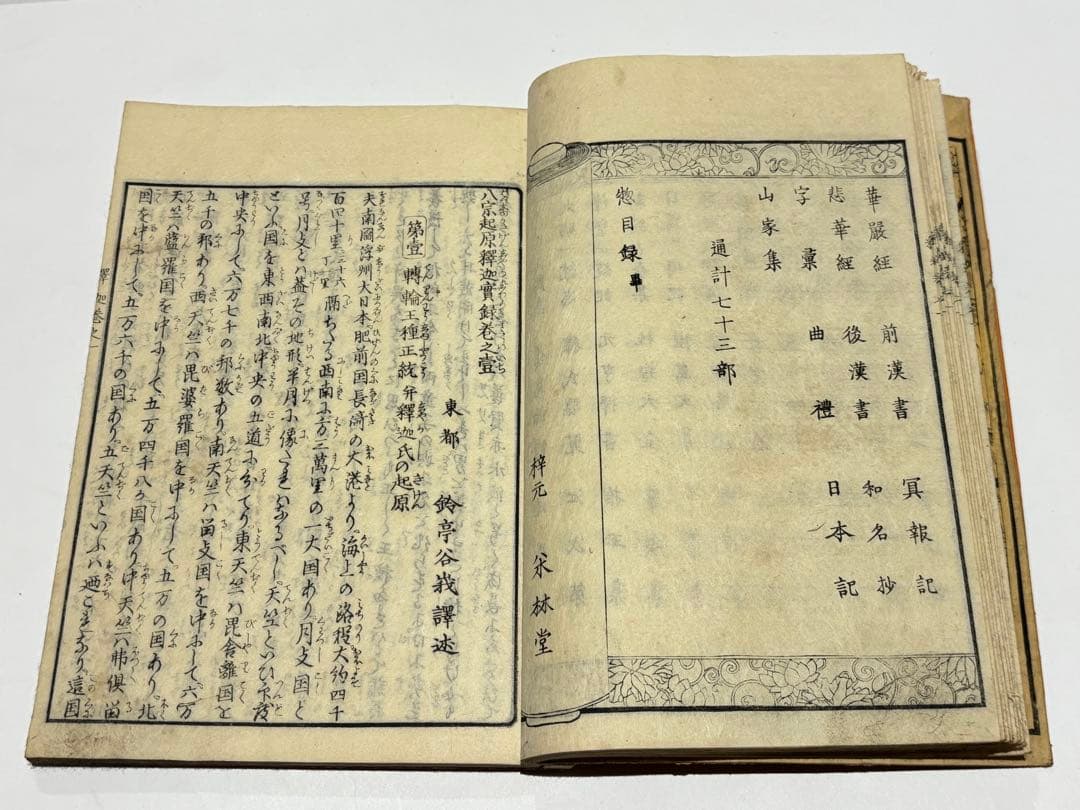 華嚴經 前漢書 冥報記
悲華經 後漢書 和名抄
字彙 曲禮 日本記
山家集
通計七十三部
惣目録畢
梓元 宋林堂
八宗起原釋迦實録卷之壹
東都 鈴亭谷峩譯述
第壹 轉輪王種正統并釋迦氏の起原
夫南閻浮州大日本肥前国長崎の大港より海上の路程大約四千
百四十里三十六丁一里隔ちたる西南に方三萬里の一大国あり月支国と
号月支とハ蓋その地形半月に像たれバなるべし天竺といひ印度
といふ国を東西南北中央の五道に分てり東天竺ハ毘舎離国を
中央にして六万七千の邦数あり南天竺ハ
国を中にして六万
五千の邦あり西天竺ハ毘婆羅国を中にして五万の国あり北
天竺ハ藍羅国を中にして五万四千八か国あり中天竺ハ
国を中にして五万六千の国あり五天竺といふハ廼これなり這国
釋迦卷之一